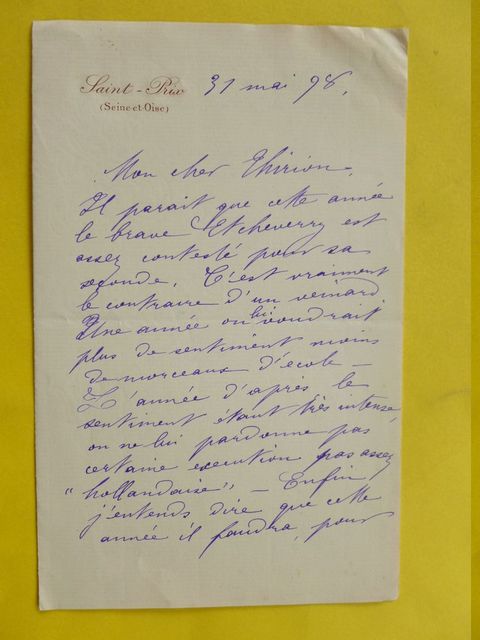 Saint-Prix 31 mai 98.
(Seine-et-Oise)
Mon cher Thirion,
Il parait que cette année
le brave Etcheverry est
assez contesté pour sa
seconde. C'est vraiment
le contraire d'un veinard
Une année on lui voudrait
plus de sentiment moins
de morceaux d'école –
L'année d'après le
sentiment étant très intense,
on ne lui pardonne pas
certaine execution pas assez
"hollandaise", – Enfin
j'entends dire que cette
année il faudra, pour